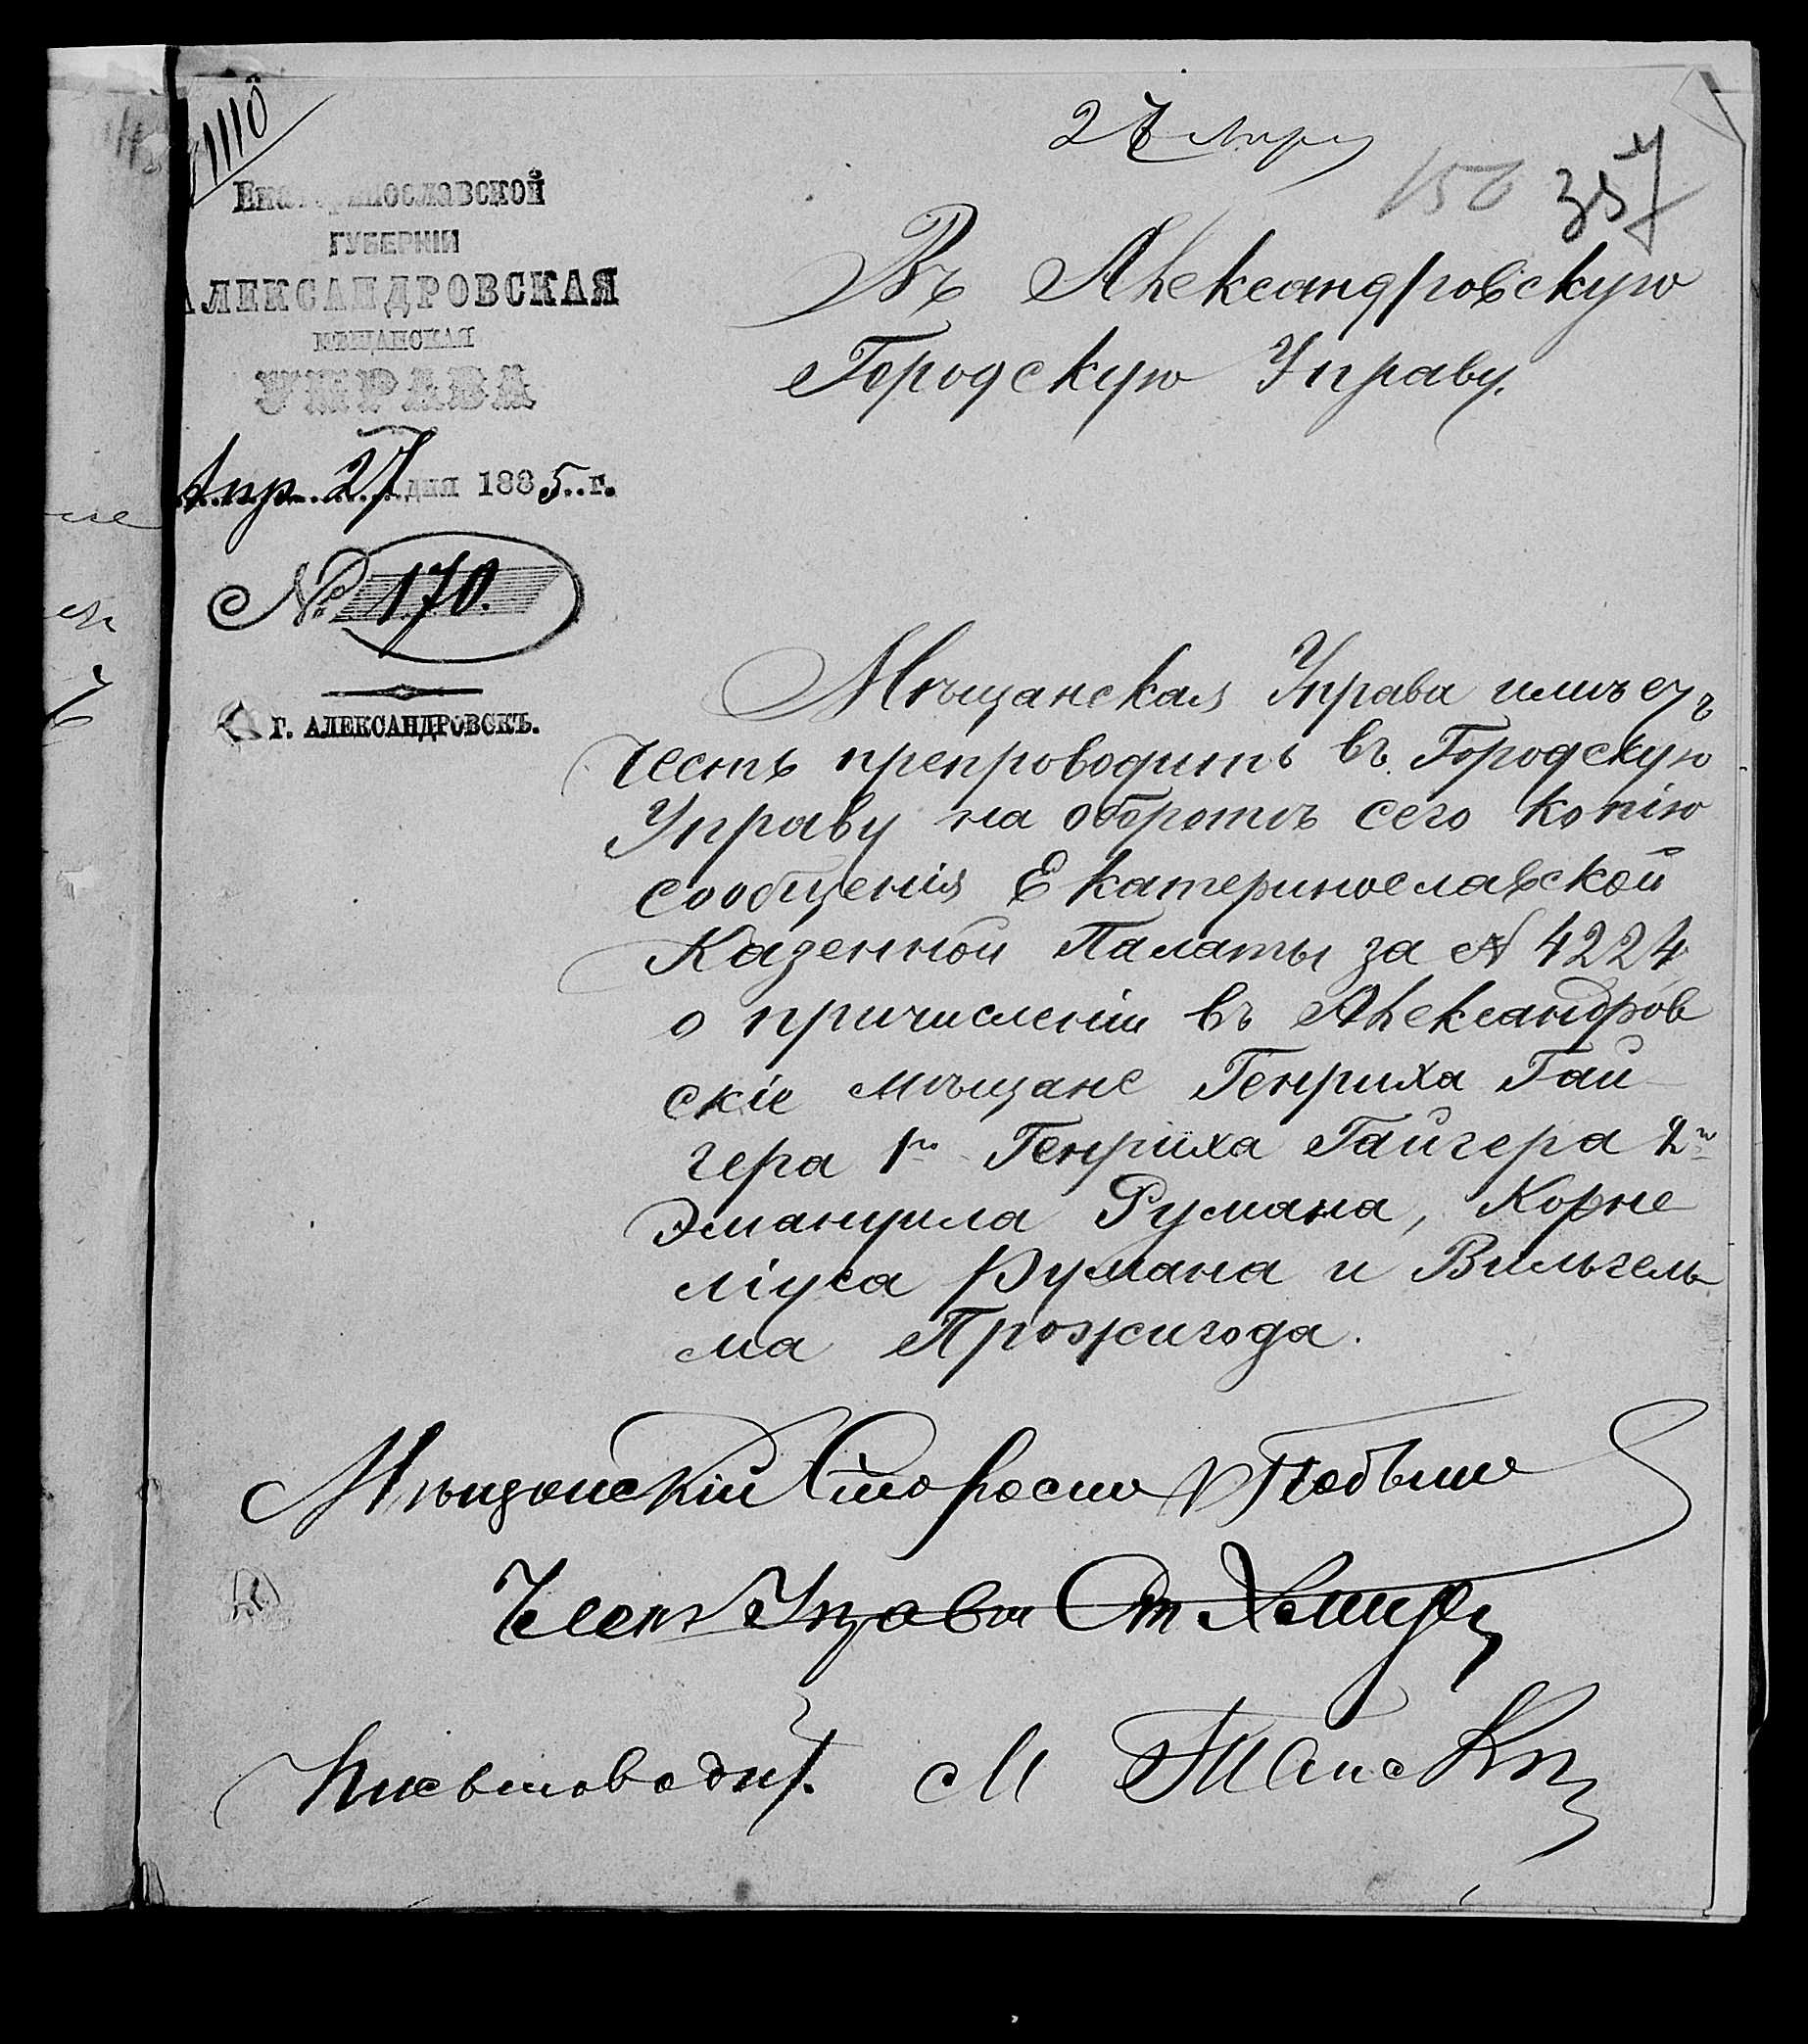 1110
27 Апр
150 357
Екатеринославской
ГУБЕРНІИ
АЛЕКСАНДРОВСКАЯ
МѢЩАНСКАЯ
УПРАВА
Апр. 27 дня 1885 г.
№ 170.
Г. АЛЕКСАНДРОВСКЪ.
Въ Александровскую
Городскую Управу.
Мѣщанская Управа имѣетъ
честь препроводить въ Городскую
Управу на оборотѣ сего копію
сообщенія Екатеринославской
Казенной Палаты за № 4224
о причисленіи въ Александров
скіе мѣщане Генриха Гай
гера 1го Генриха Гайгера 2го
Эмануила Румана, Корне
ліуса Румана и Вильгель
ма Прожигода.
Мѣщанскій Староста
Членъ Управы
Письмоводит. М